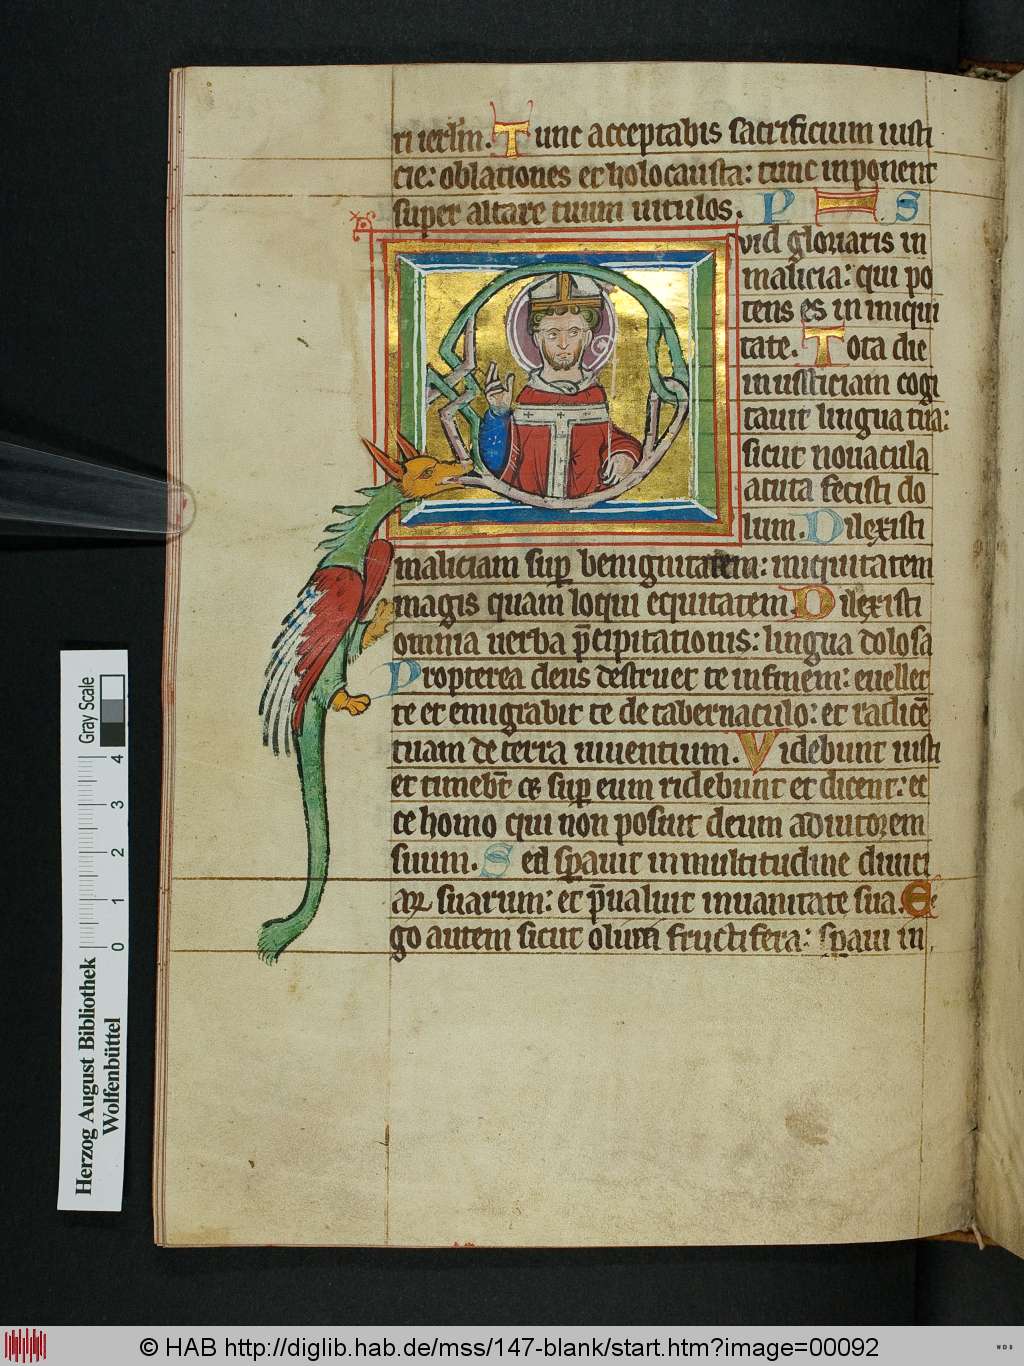 ri ierłm. Tunc acceptabis sacrificium iusti
cie: oblationes et holocausta: tunc inponent
super altare tuum uitulos. P S
Quid gloriaris in
malicia: qui po
tens es in iniqui
tate. Tota die
iniusticiam cogi
tauit lingua tua:
sicut nouacula
acuta fecisti do
lum. Dilexisti
maliciam sup̱ benignitatem: iniquitatem
magis quam loqui equitatem Dilexisti
omnia uerba p̄cipitationis: lingua dolosa
Propterea deus destruet te infinem: euellet
te et emigrabit te de tabernaculo: et radicē
tuam de terra uiuentium. Videbunt iusti
et timebt̄ et sup̱ eum ridebunt et dicent: ec
ce homo qui non posuit deum adiutorem
suum. Sed sp̱auit in multitudine diuici
aꝝ suarum: et p̄ualuit inuanitate sua. E
go autem sicut oliua fructifera: sp̱aui in
Gray Scale
4
3
2
1
0
Herzog August Bibliothek
Wolfenbüttel
© HAB http://diglib.hab.de/mss/147-blank/start.htm?image=00092